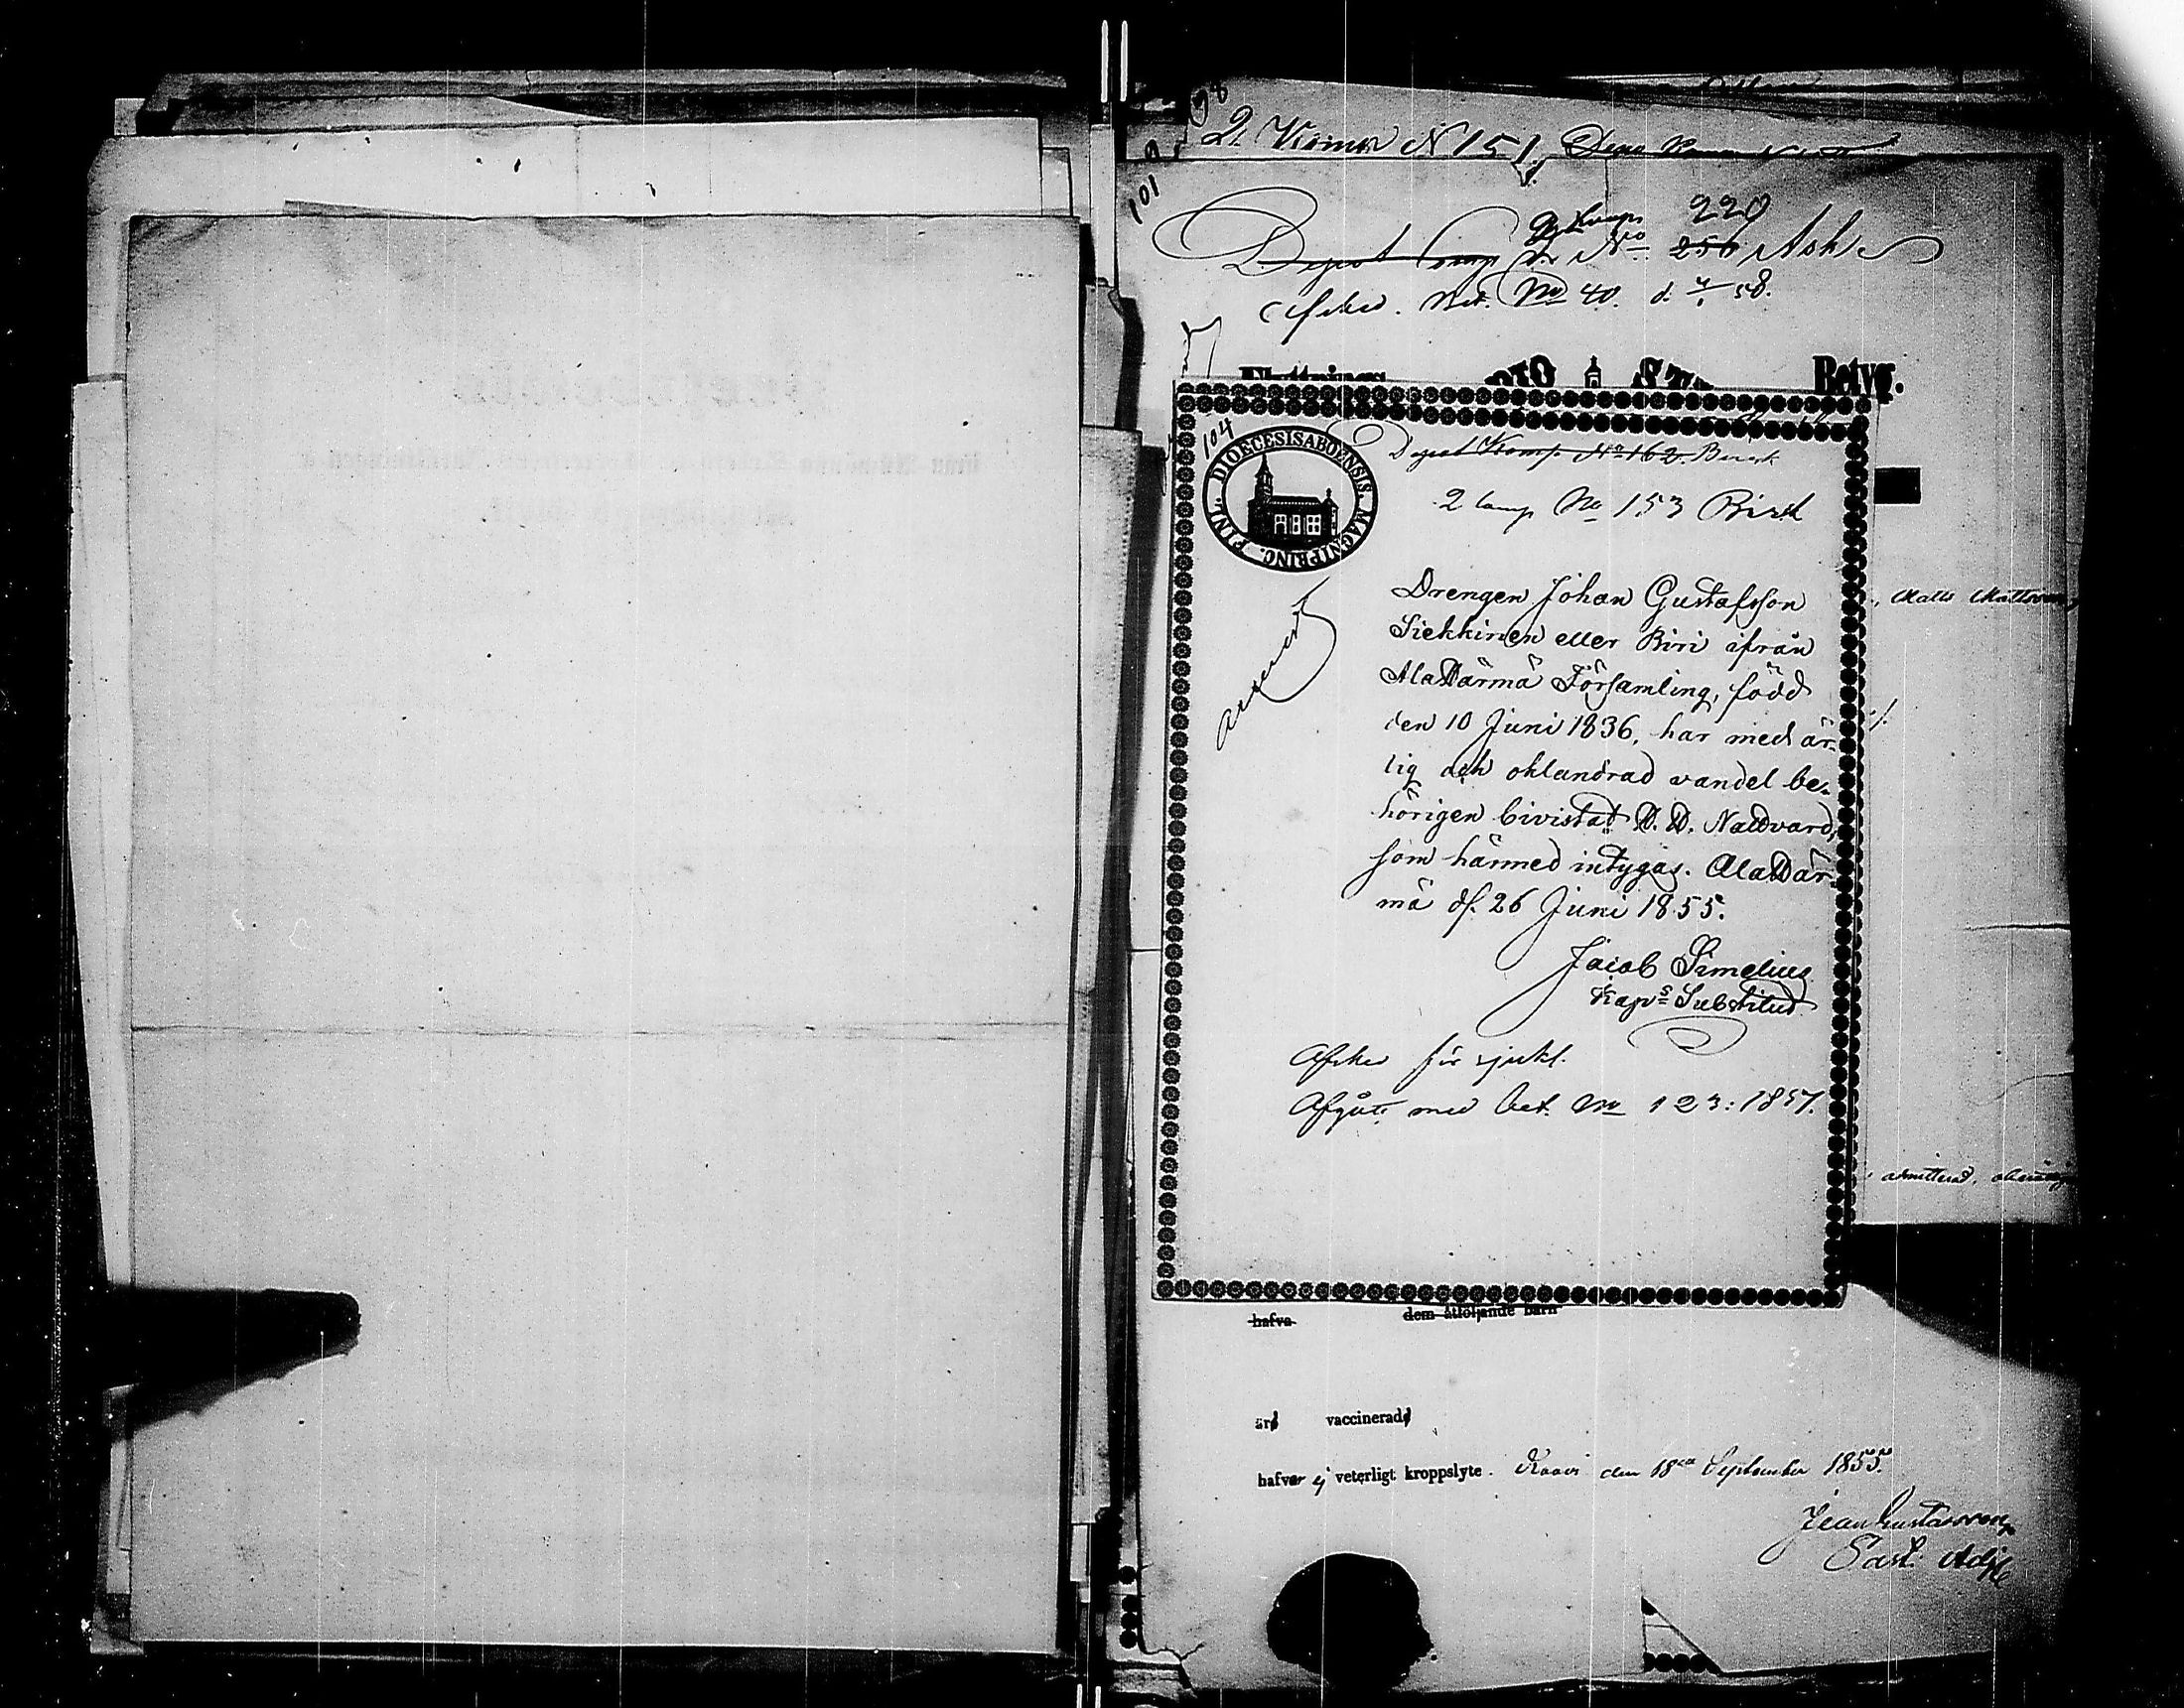 101
2. Komp N 151.
2 Komp 220
Depot Komp No 256 Ask
Afsked. Bet. No 40. d. 4/1 58.
Betyg.
104
DIOECESIS ABOENSIS. MAGNI PRINC. FINL.
Depot Komp. No 162. Birck
2 Comp No 153 Birck
Drengen Johan Gustafsson
Siekkinen eller Piri ifrån
Ala Härmä Församling, född
den 10 Juni 1836, har med är-
lig och oklandrad vandel be-
hörigen bivistat H. H. Nattvard,
som härmed intygas. Ala Här-
mä d. 26 Juni 1855.
Jacob Simelius
Kaps Substitut
Afsked för sjukl.
Afgått med bet. No 123: 1857.
Matts Mattsson
admitterad,
hafva
dem åtföljande barn
är vaccinerad
hafver ej veterligt kroppslyte. den 18de September 1855.
Jean Gustafsson
Past. Adj.